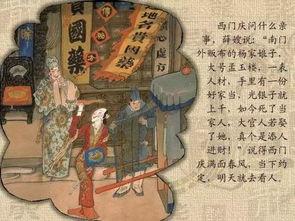 國藥
西门庆问什么亲
事，薛嫂说：“南门
外贩布的杨家娘子，
大号孟玉楼，一表
人材，手里有一份
好家当，光银子就
上千，如今死了当
家人，大官人若娶
了她，真个是添人
进财！”说得西门
庆满面春风，当下约
定，明天就去看人。